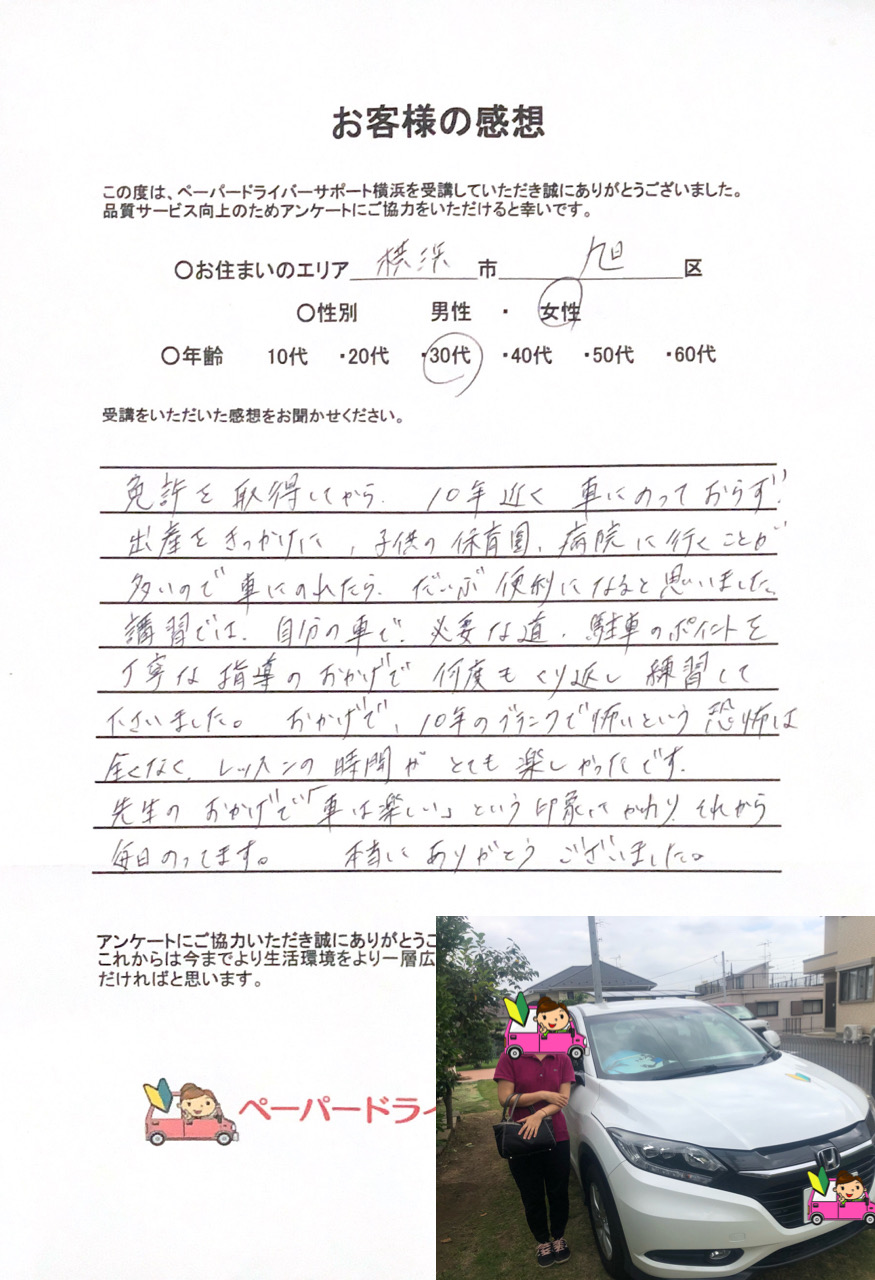 お客様の感想
この度は、ペーパードライバーサポート横浜を受講していただき誠にありがとうございました。
品質サービス向上のためアンケートにご協力をいただけると幸いです。
〇お住まいのエリア 横浜 市 旭 区
〇性別 男性 ・ 女性
〇年齢 10代 ・20代 ・30代 ・40代 ・50代 ・60代
受講をいただいた感想をお聞かせください。
免許を取得してから、10年近く車にのっておらず、
出産をきっかけに、子供の保育園、病院に行くことが
多いので車にのれたら、だいぶ便利になると思いました。
講習では、自分の車で、必要な道、駐車のポイントを
丁寧な指導のおかげで何度もくり返し練習して
下さいました。おかげで、10年のブランクで怖いという恐怖は
全くなく、レッスンの時間がとても楽しかったです。
先生のおかげで「車は楽しい」という印象にかわり、それから
毎日のってます。 本当にありがとうございました。
アンケートにご協力いただき誠にありがとうご
これからは今までより生活環境をより一層広
だければと思います。
ペーパードライ